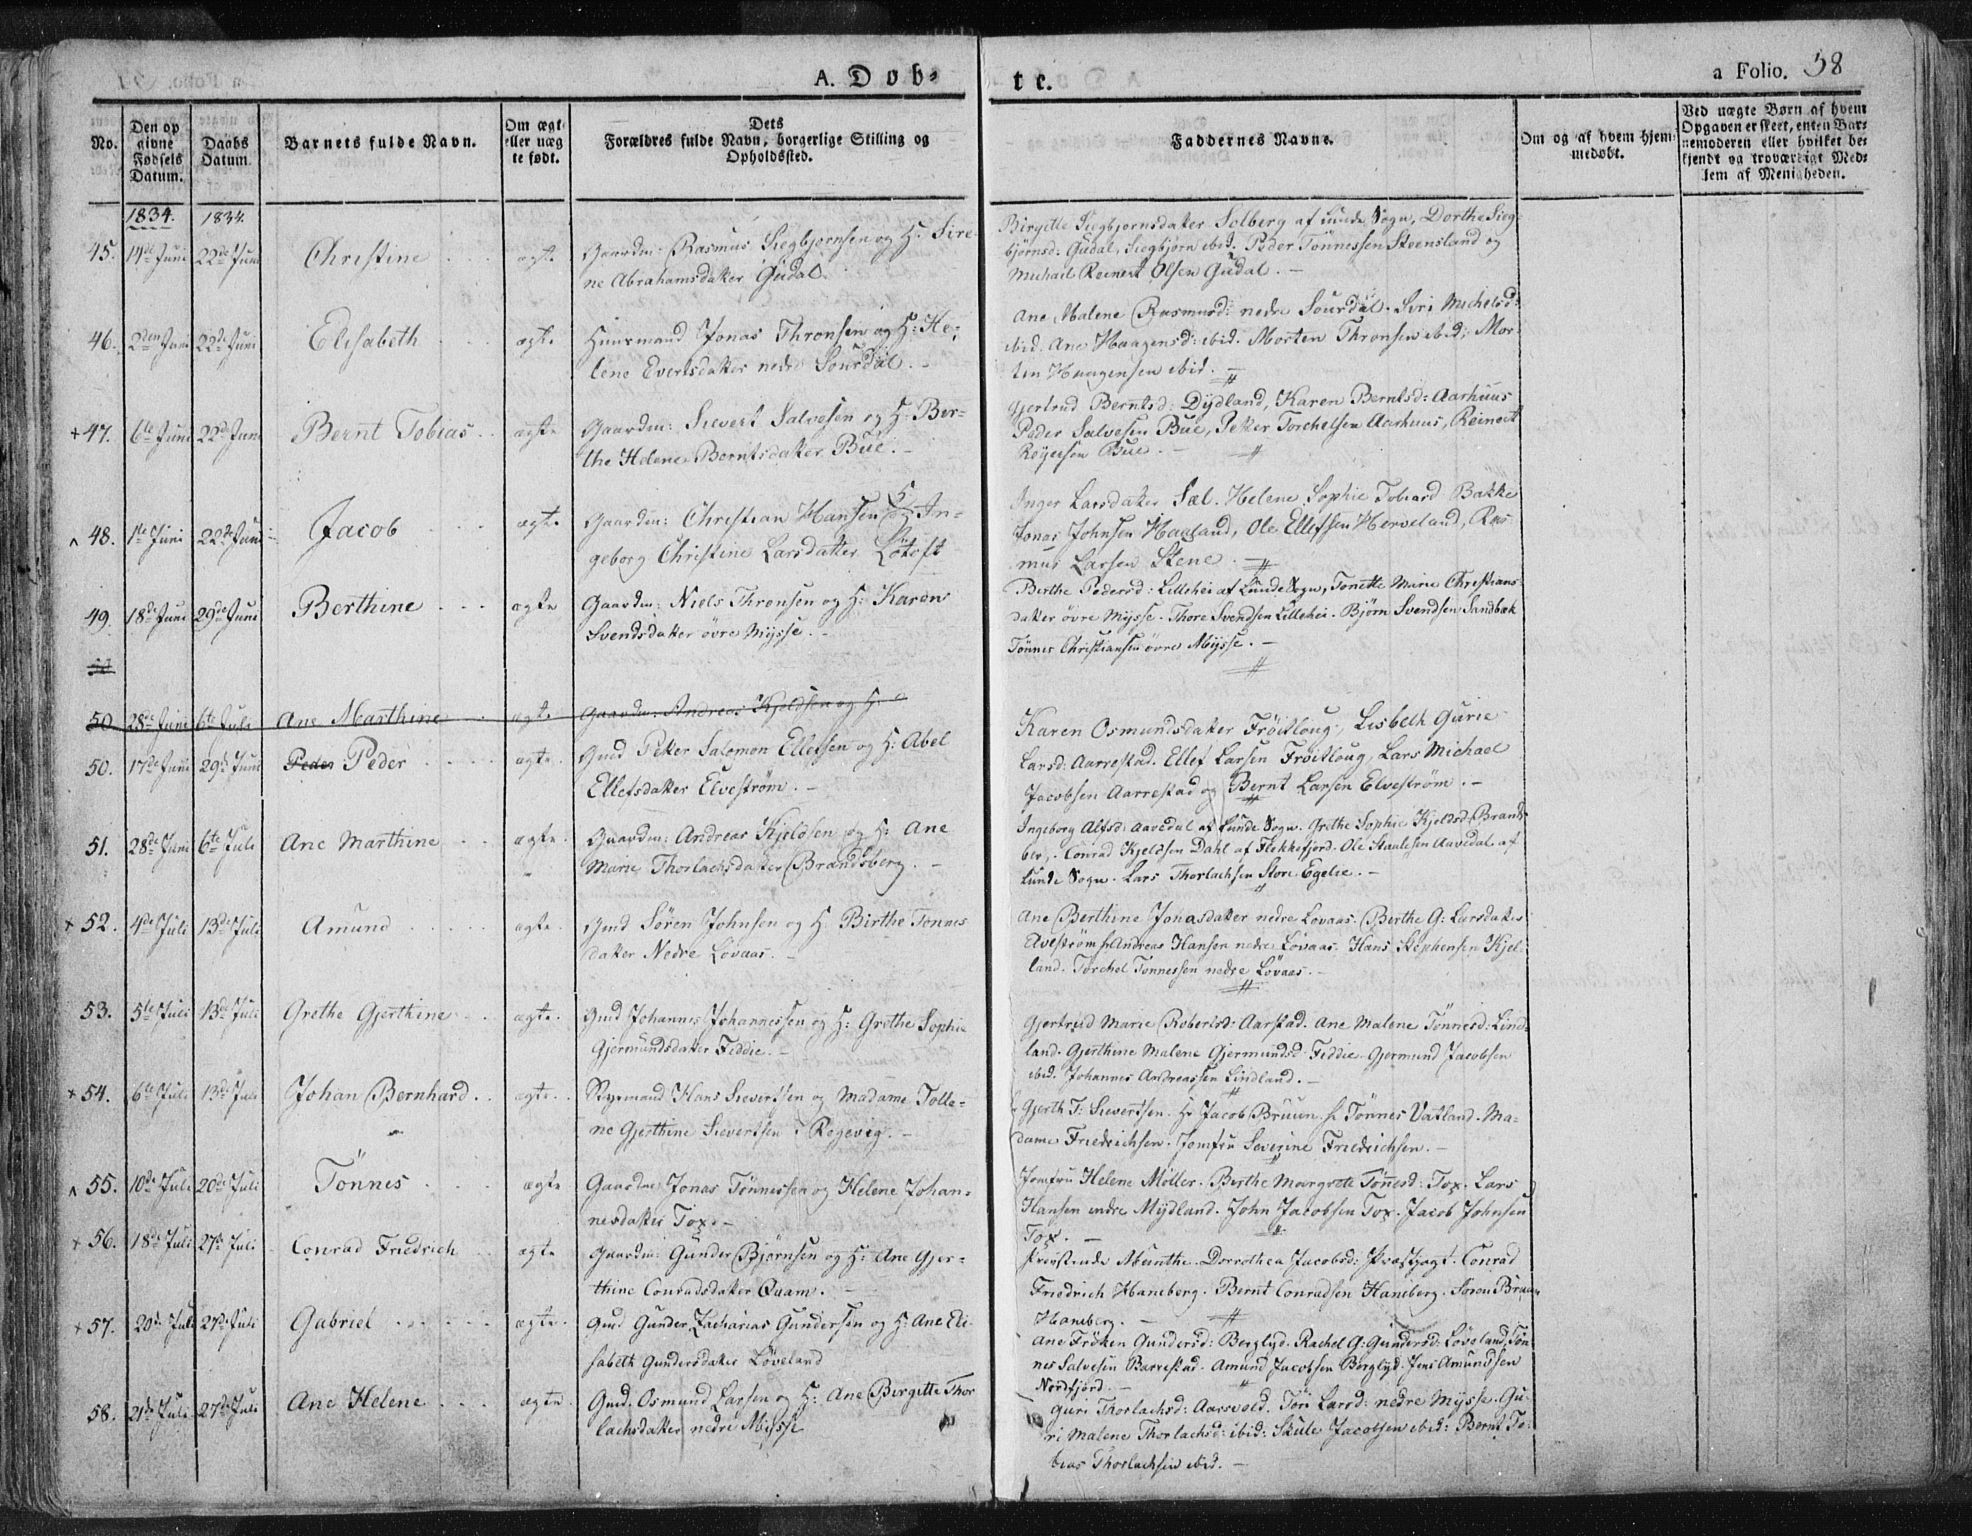 A. Døb-
te.
a Folio. 58
No.
Den op
givne
Fødsels
Datum.
Daabs
Datum.
Barnets fulde Navn.
Om ægt
eller uæg
te født.
Dets
Forældres fulde Navn, borgerlige Stilling og
Opholdssted.
Faddernes Navne.
Om og af hvem hjem-
medøbt.
Ved uægte Børn af hvem
Opgaven er skeet, enten Bar-
nemoderen eller hvilket be-
kjendt og troværdigt Med-
lem af Menigheden.
1834. 1834.
45. 14de Juni 22de Juni Christine ægte Gaardm: Rasmus Siegbjørnsen og H. Sire-
ne Abrahamsdatter Gudal.
Birgitte Siegbjørnsdatter Solberg af Lunde Sogn, Dorthe Sieg-
bjørnsd: Gudal, Siegbjørn ibid. Peder Tönnessen Steensland og
Michael Reinert Olsen Gudal. -
46. 2den Juni 22de Juni Elisabeth ægte Huusmand Jonas Thronsen og H: He-
lene Evertsdatter nedre Sourdal. -
Ane Malene Rasmusd: nedre Sourdal. Siri Michelsd:
ibid. Ane Haagensd: ibid. Morten Thronsen ibid; Mor-
ten Haagensen ibid. -
+ 47. 6te Juni 22de Juni Bernt Tobias ægte Gaardm: Sievert Salvesen og H: Ber-
the Helene Berntsdatter Bue. -
Gjertrud Berntsd: Dydland, Karen Berntsd: Aarhuus
Peder Salvesen Bue, Peter Torchelsen Aarhuus, Reinert
Bue. -
48. 1ste Juni 22de Juni Jacob ægte Gaardm: Christian Hansen og H In-
geborg Christine Larsdatter Løtoft
Inger Larsdatter Sæl. Helene Sophie Tobiasd Bakke
Jonas Johnsen Haaland, Ole Ellefsen Herveland, Ras-
mus Larsen Stene. -
49. 18de Juni 29de Juni Berthine ægte Gaardm: Niels Thronsen og H: Karen
Svendsdatter övre Mysse. -
Berthe Pedersd: Lillehei af Lunde Sogn, Tonette Marie Christians-
datter övre Mysse. Thore Svendsen Lillehei. Bjørn Svendsen Sandbæk
Tönnes Christiansen övre Mysse. -
50 28de Juni 6te Juli Ane Marthine ægte Gaardm: Andreas Kjeldsen og H:
50. 17de Juni 29de Juni Peder Peder ægte. Gmd Peter Salomon Ellefsen og H: Abel
Ellefsdatter Elvestrøm. -
Karen Osmundsdatter Frøitloug, Lisbeth Gurie
Larsd: Aarrestad. Ellef Larsen Frøitloug, Lars Michael
Jacobsen Aarrestad og Bernt Larsen Elvestrøm. -
51. 28de Juni 6te Juli Ane Marthine ægte. Gaardm: Andreas Kjeldsen og H: Ane
Marie Thorlachsdatter Brandsberg. -
Ingeborg Alfsd: Aavedal af Lunde Sogn. Grethe Sophie Kjeldsd: Brands-
ber,. Conrad Kjeldsen Dahl af Flekkefjord. Ole Staalesen Aavedal af
Lunde Sogn. Lars Thorlachsen Store Egelie. -
+ 52. 4de Juli 13de Juli Amund ægte. Gmd Søren Johnsen og H Birthe Tönnes
datter Nedre Lövaas. -
Ane Berthine Jonasdatter nedre Lövaas. Berthe G: Larsdatter
Andreas Hansen nedre Lövaas. Hans Stephensen Kjel-
land. Torchel Tönnessen nedre Lövaas. -
53. 5te Juli 13de Juli Grethe Gjerthine ægte. Gmd Johannes Johannessen og H: Grethe Sophie
Gjermundsdatter Feddie. -
Gjertrud Marie Robertsd: Aarstad. Ane Malene Tönnesd: Lind-
land. Gjerthine Malene Gjermundsd: Feddie. Gjermund Jacobsen
ibid. Johannes Andreassen Lindland. -
+ 54. 6te Juli 13de Juli Johan Bernhard. ægte. Styrmand Hans Sievertsen og Madame Tolle-
ne Gjerthine Sievertsen i Regevig. -
Gjerth T: Sievertsen. Hr Jacob Bruun. Hr Tönnes Vatland. Ma-
dame Friedrichsen. Jomfru Severine Friedrichsen. -
55. 10de Juli 20de Juli Tönnes ægte Gaardm: Jonas Tönnessen og Helene Johan-
nesdatter Tox. -
Jomfru Helene Möller. Berthe Margrete Tönesd: Tox. Lars
Hansen indre Mydland. John Jacobsen Tox. Jacob Johnsen
Tox. -
+ 56. 18de Juli 27de Juli Conrad Friedrich ægte Gaardm: Gunder Bjørnsen og H: Ane Gjer-
thine Conradsdatter Quam. -
Munthe. Dorothea Jacobsd: Conrad
Friedrich Haneberg. Bernt Conradsen Haneberg. Søren Bruun
Haneberg. -
+ 57. 20de Juli 27de Juli Gabriel ægte. Gmd Gunder Zacharias Gundersen og H: Ane Eli-
sabeth Gundersdatter Løveland
Ane Frøken Gundersd: Berglyd. Rachel G: Gundersd: Løveland, Tön-
nes Salvesen Barrestad. Amund Jacobsen Berglyd. Jens Amundsen
Nordfjord. -
58. 21de Juli 27de Juli Ane Helene ægte Gmd. Osmund Larsen og H: Ane Birgitte Thor-
lachsdatter nedre Mysse
Guri Thorlachsd: Aarsvold. Töri Larsd: nedre Mysse. Gu-
ri Malene Thorlachsd: ibid: Skule Jacobsen ibid: Bernt To-
bias Thorlachsen ibid. -